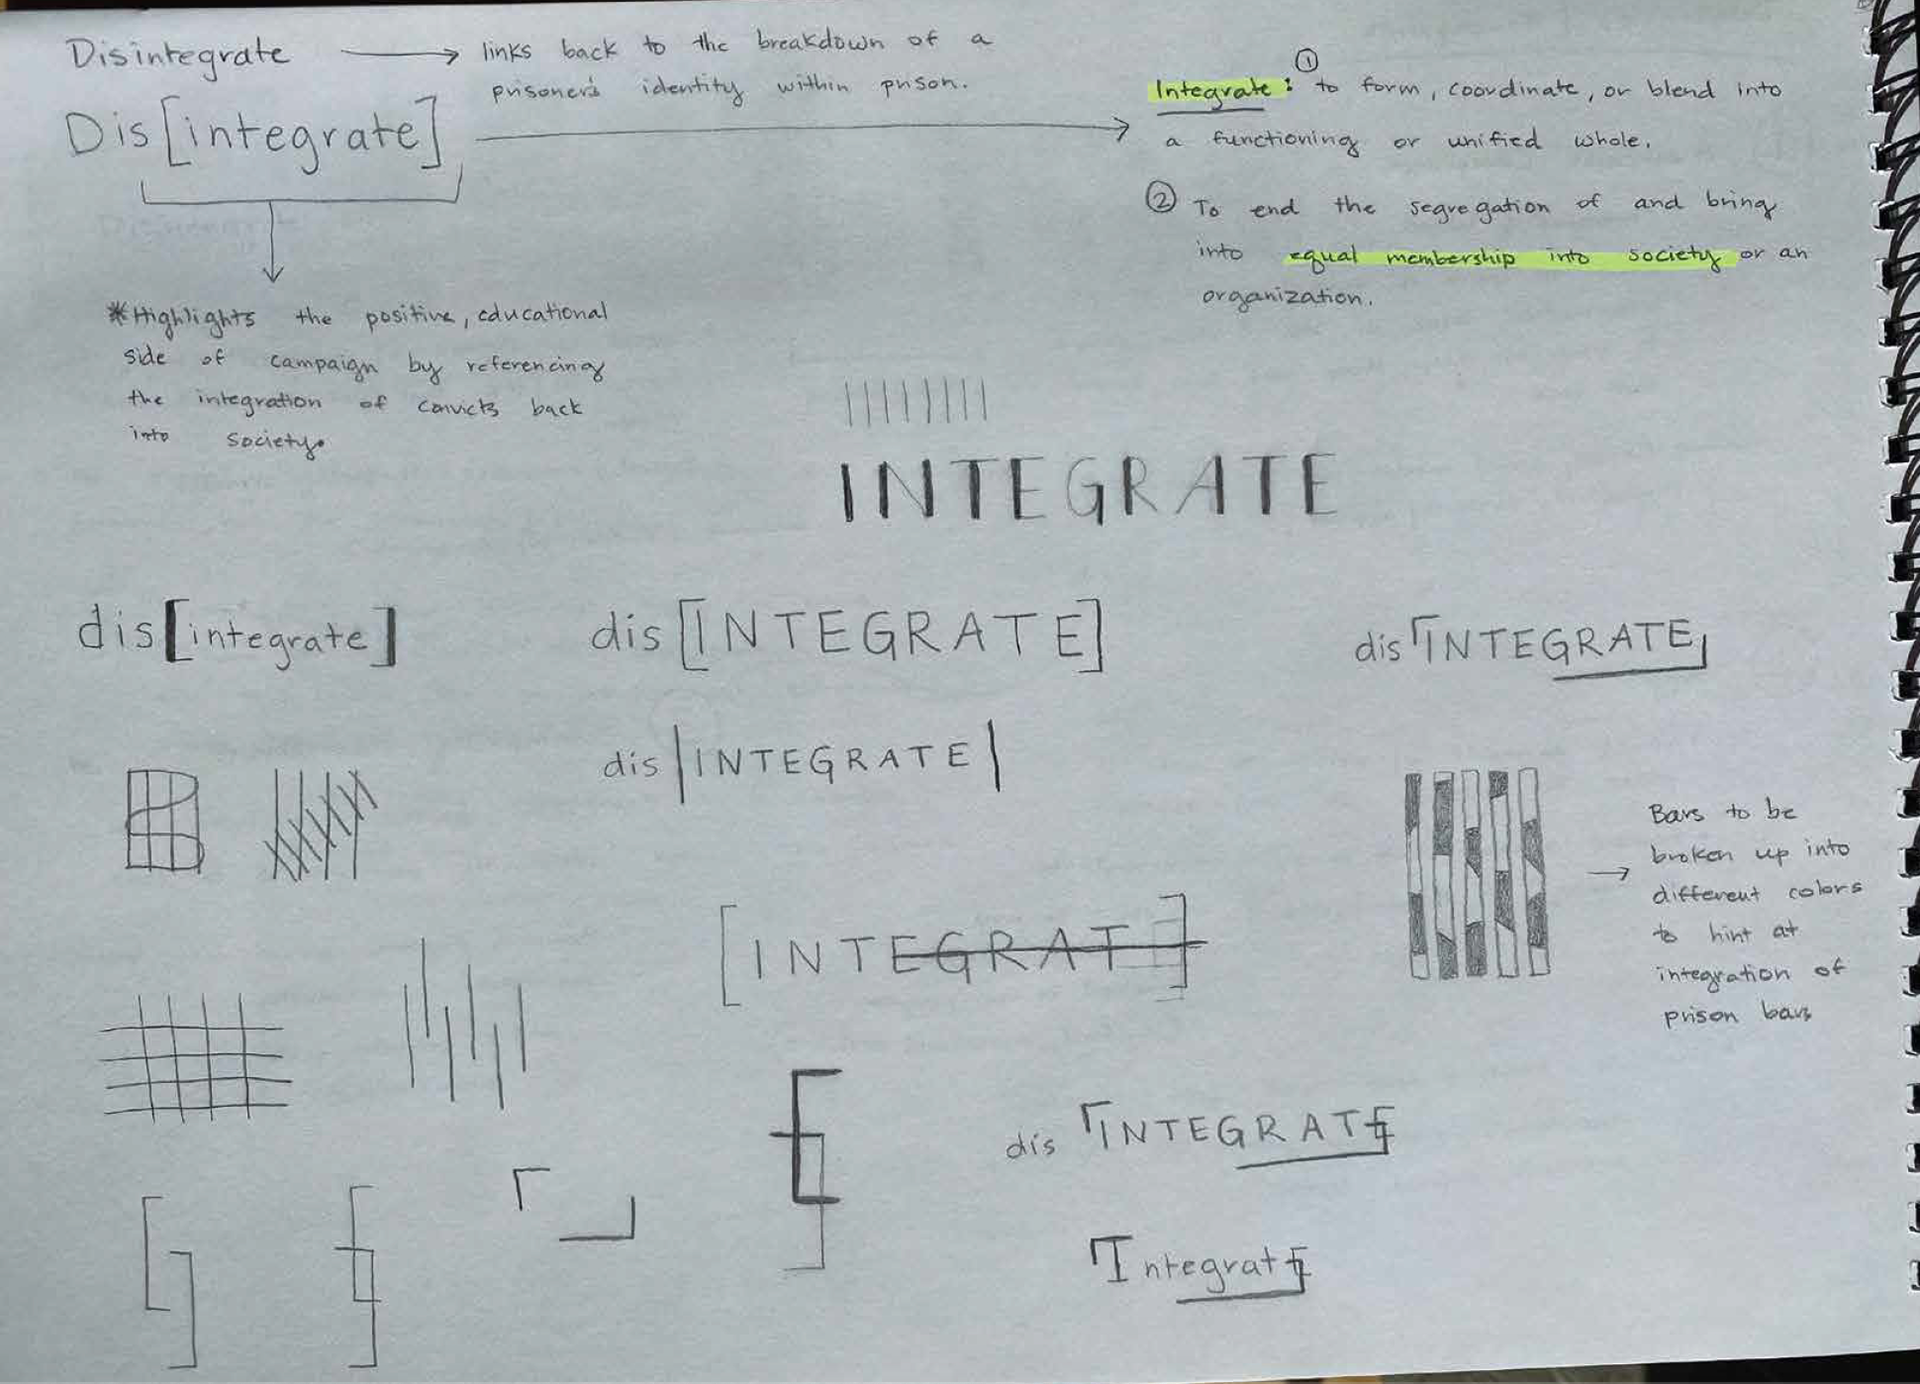 Disintegrate → links back to the breakdown of a
prisoner's identity within prison.
Dis[integrate]
Integrate: ① to form, coordinate, or blend into
a functioning or unified whole.
② To end the segregation of and bring
into equal membership into society or an
organization.
*Highlights the positive, educational
side of campaign by referencing
the integration of convicts back
into society.
INTEGRATE
dis[integrate]
dis[INTEGRATE]
dis「INTEGRATE」
dis|INTEGRATE|
Bars to be
broken up into
different colors
to hint at
integration of
prison bars
[INTEGRAT]
dis「INTEGRATE
「Integrate